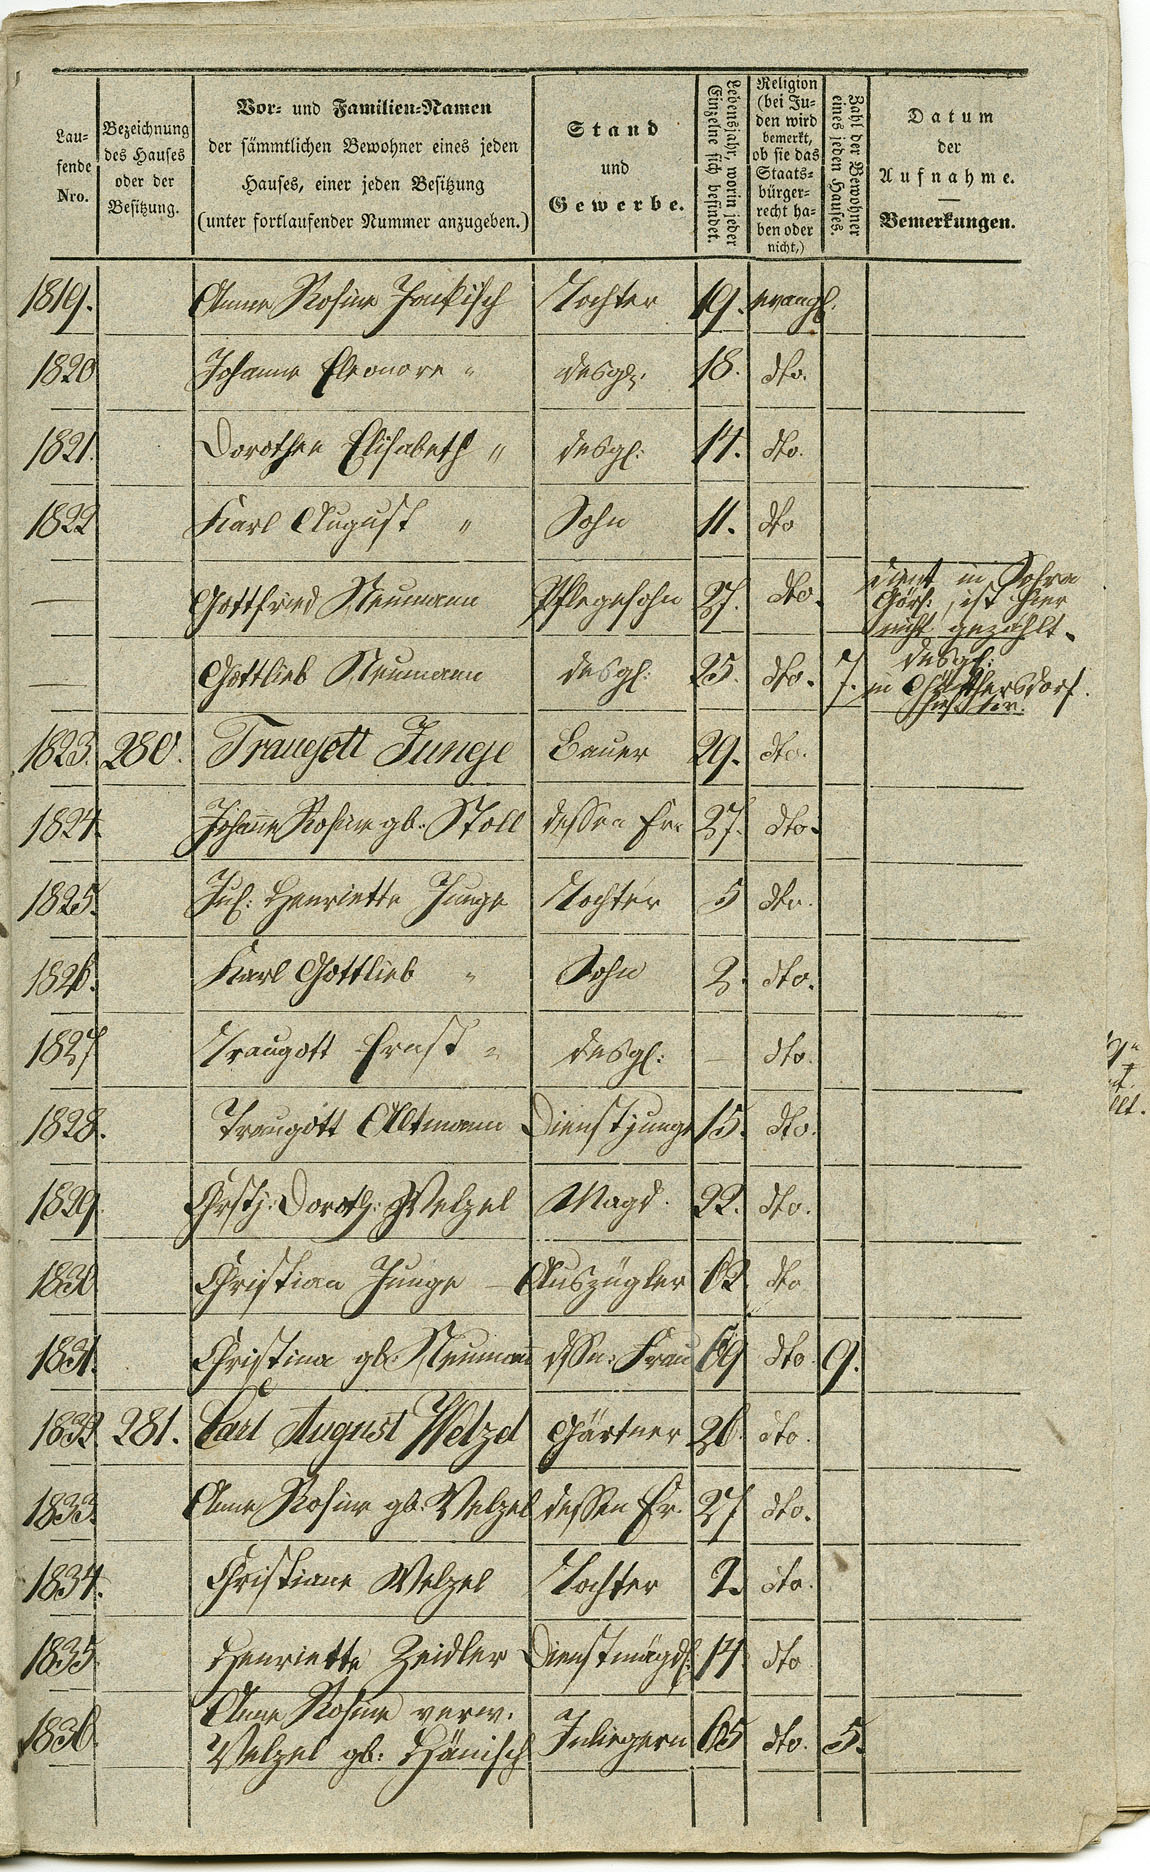 Lau-
fende
Nro.
Bezeichnung
des Hauses
oder der
Besitzung.
Vor- und Familien-Namen
der sämmtlichen Bewohner eines jeden
Hauses, einer jeden Besitzung
(unter fortlaufender Nummer anzugeben.)
Stand
und
Gewerbe.
Lebensjahr, worin jeder
Einzelne sich befindet.
Religion
(bei Ju-
den wird
bemerkt,
ob sie das
Staats-
bürger-
recht ha-
ben oder
nicht,)
Zahl der Bewohner
eines jeden Hauses.
Datum
der
Aufnahme.
Bemerkungen.
1819. Anne Rosine Tochter 19. evangl.
1820 Johanne Eleonore " desgl. 18. dto.
1821. Dorothea Elisabeth " desgl: 14. dto.
1822 Karl August " Sohn 11. dto
— Gottfried Neumann Pflegesohn 27. dto. dient in Sohra
Görl:, ist hier
nicht gezählt.
— Gottlieb Neumann desgl: 25. dto. 7. desgl:
in
1823. 280. Traugott Junge Bauer 29. dto.
1824. Johanne Rosine gb. Stoll dessen Fr. 27. dto.
1825. Jul: Henriette Junge Tochter 5 dto.
1826. Karl Gottlieb " Sohn 2. dto.
1827 Traugott Ernst " desgl: — dto.
1828. Traugott Altmann Dienstjunge 15. dto.
1829. Doroth: Welzel Magd. 22. dto.
1830 Christian Junge — Auszügler 62 dto
1831. Christina gb. Neumann dssn: Frau 69 dto 9.
1832. 281. Carl August Welzel Gärtner 26. dto.
1833. Anne Rosine gb. Welzel dessen Fr. 27 dto.
1834. Christiane Welzel Tochter 2. dto.
1835. Henriette Zeidler 14. dto
1836. Anne Rosine verw.
Welzel gb: Hänisch Inliegerin 65 dto. 5.